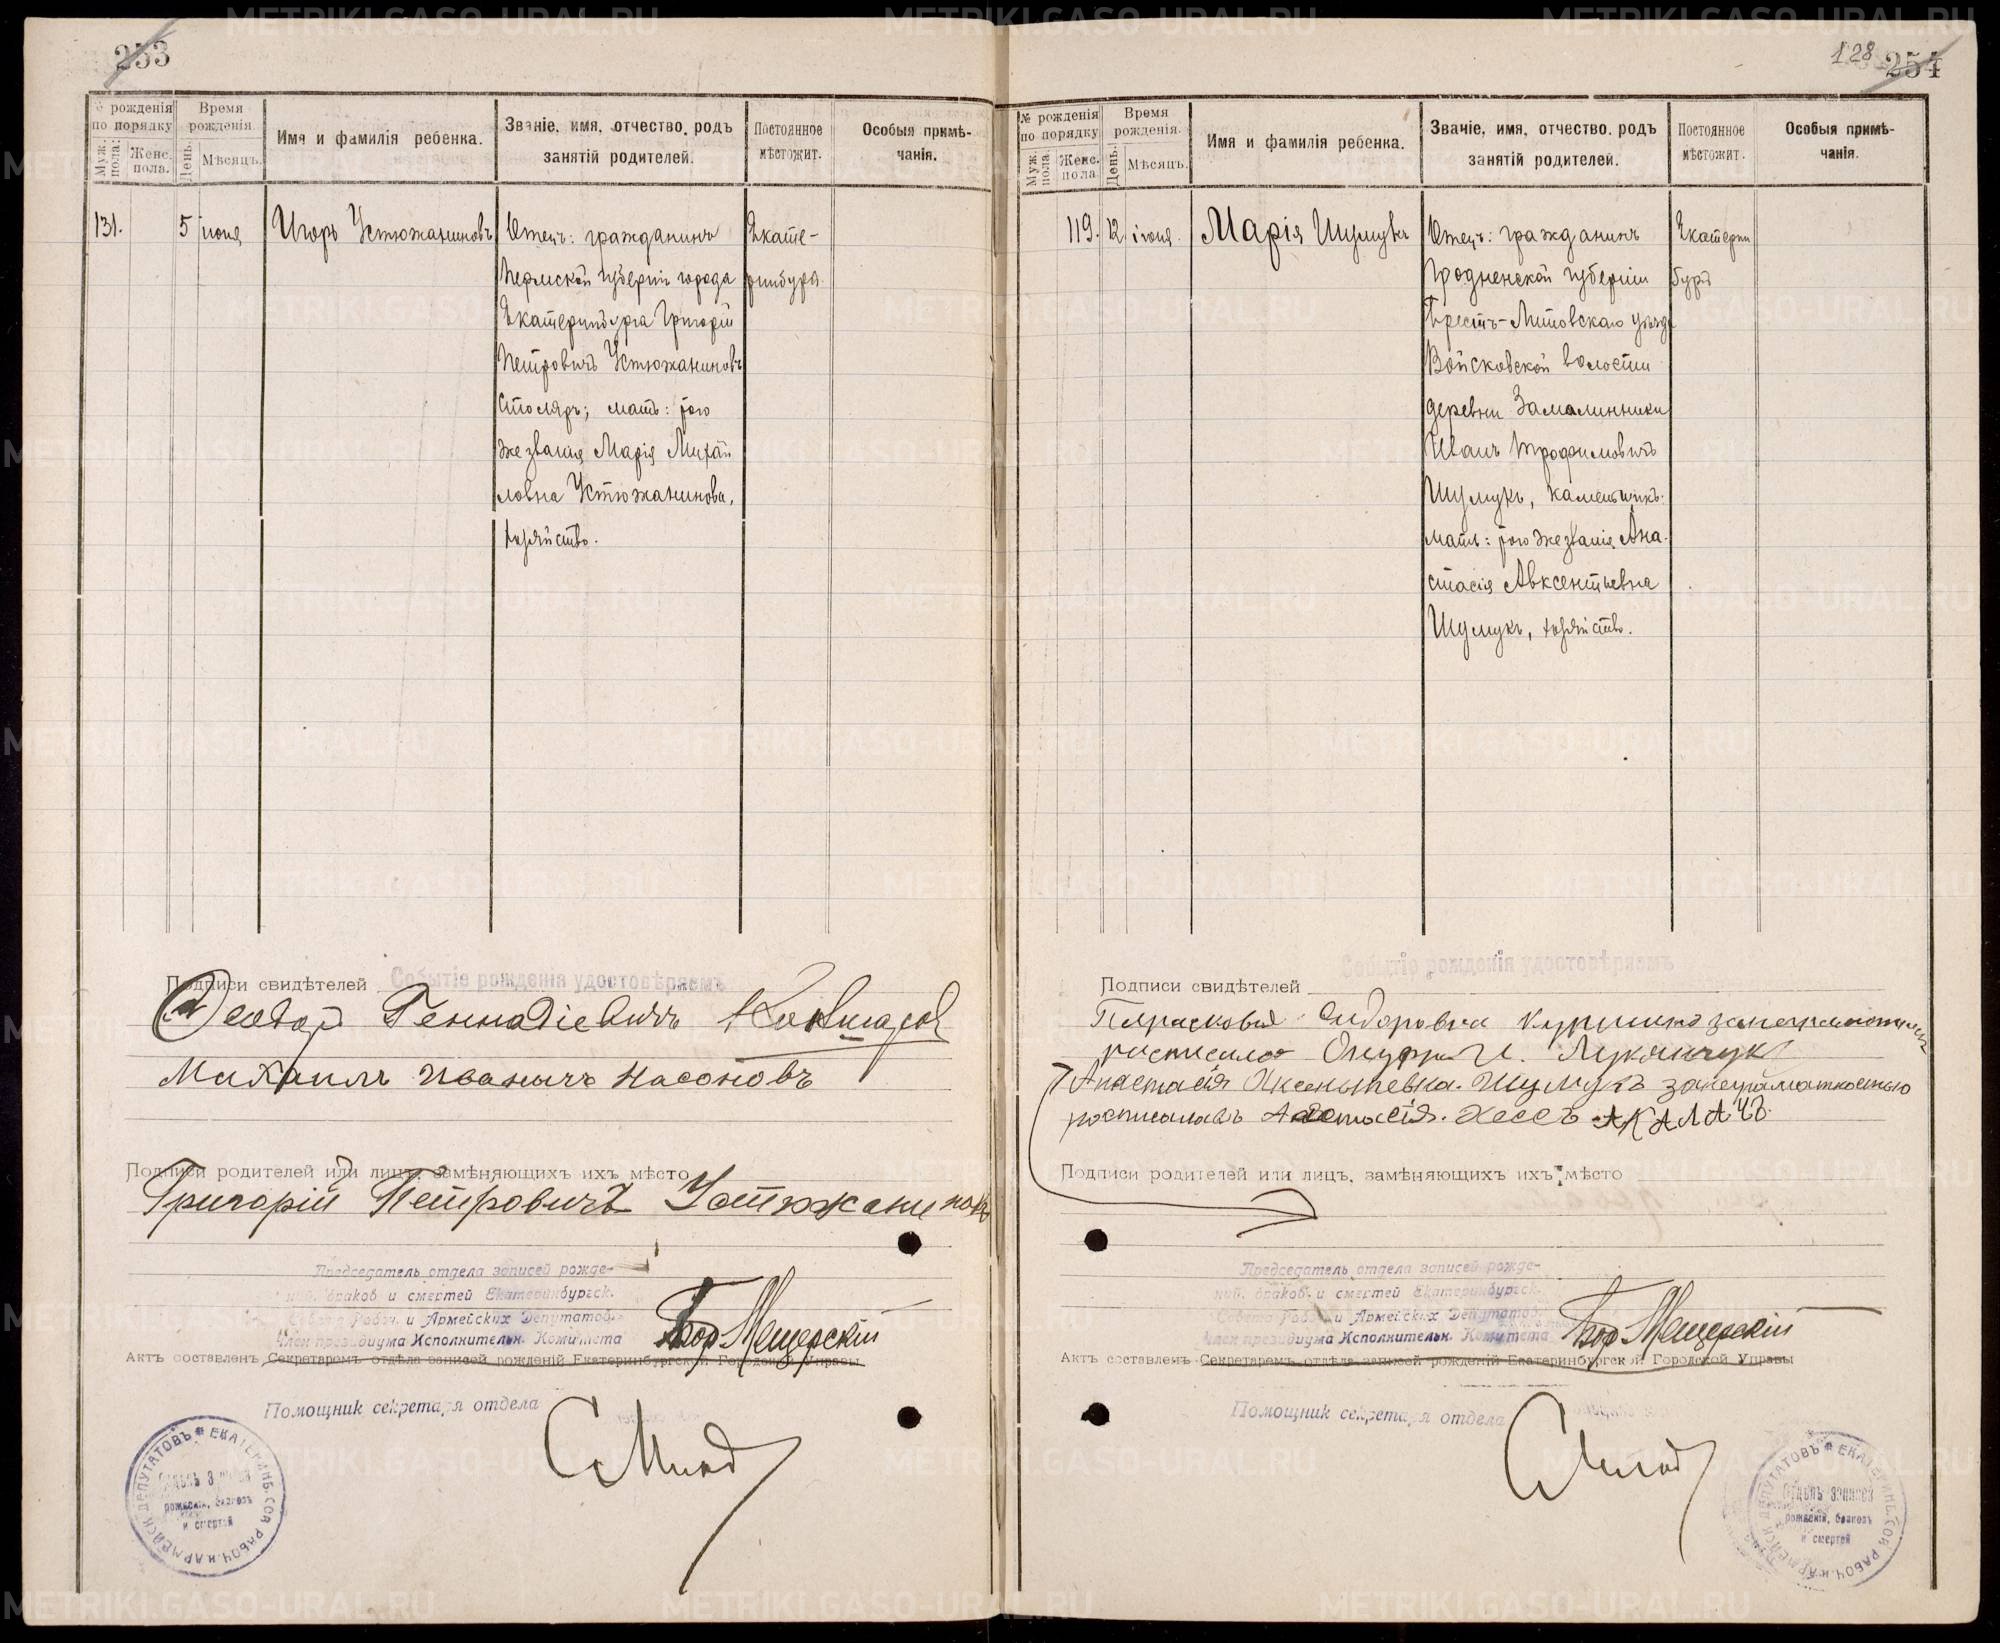 METRIKI.GASO-URAL.RU
253
№ рожденія по порядку
Муж. пола.
Женс. пола.
Время рожденія.
День.
Мѣсяцъ.
Имя и фамилія ребенка.
Званіе, имя, отчество, родъ занятій родителей.
Постоянное мѣстожит.
Особыя примѣчанія.
131.
5
іюня
Игорь Устюжаниновъ
Отецъ: гражданинъ
Пермской губерніи города
Екатеринбурга Григорій
Петровичъ Устюжаниновъ
столяръ; мать: того
же званія Марія Михай
ловна Устюжанинова,
хозяйство.
Екате-
ринбургъ
Подписи свидѣтелей
Событіе рожденія удостовѣряемъ
Феодор Геннадіевичъ
Михаилъ Иванычъ Насоновъ
Подписи родителей или лицъ, замѣняющихъ ихъ мѣсто
Григорій Петровичъ Устюжаниновъ
Председатель отдела записей рожде-
ний, браков и смертей Екатеринбургск.
Совета Рабоч. и Армейских Депутатов.
Член президиума Исполнительн. Комитета
Мещерскій
Актъ составленъ Секретаремъ отдѣла записей рожденій Екатеринбургской Городской Управы
Помощник секретаря отдела
ЕКАТЕРИНБ. СОВ. РАБОЧ. и АРМЕЙСК. ДЕПУТАТОВЪ
Отдѣлъ записей
рожденій, браковъ
и смертей
128
254
№ рожденія по порядку
Муж. пола.
Женс. пола
Время рожденія.
День.
Мѣсяцъ.
Имя и фамилія ребенка.
Званіе, имя, отчество, родъ занятій родителей.
Постоянное мѣстожит.
Особыя примѣчанія.
119.
12
іюня.
Марія Шумукъ
Отецъ: гражданинъ
Гродненской губерніи
Брестъ-Литовскаго уѣзда
Войсковской волости
деревни Замалинники
Иванъ Трофимовичъ
Шумукъ, каменьщикъ.
мать: того же званія Ана-
стасія Авксентьевна
Шумукъ, хозяйство.
Екатерин
бургъ
Событіе рожденія удостовѣряемъ
Подписи свидѣтелей
Сидоровна
Лукянчукъ
Анастасія Аксентьевна. Шумукъ занеграматностью
Подписи родителей или лицъ, замѣняющихъ ихъ мѣсто
Председатель отдела записей рожде-
ний, браков и смертей Екатеринбургск.
Совета Рабоч. и Армейских Депутатов.
Член президиума Исполнительн. Комитета
Мещерскій
Актъ составленъ Секретаремъ отдѣла записей рожденій Екатеринбургской Городской Управы
Помощник секретаря отдела
ЕКАТЕРИНБ. СОВ. РАБОЧ. и АРМЕЙСК. ДЕПУТАТОВЪ
Отдѣлъ записей
рожденій, браковъ
и смертей